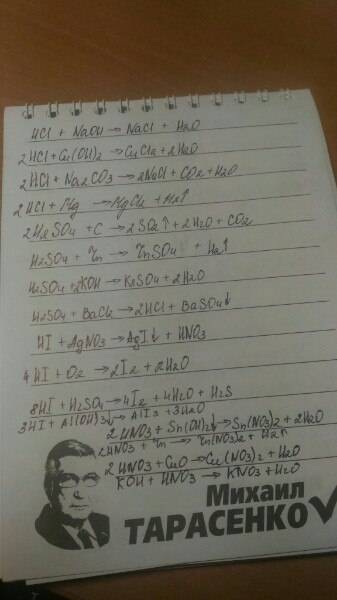 HCl + NaOH → NaCl + H2O
2HCl + Cu(OH)2 → CuCl2 + 2H2O
2HCl + Na2CO3 → 2NaCl + CO2 + H2O
2HCl + Mg → MgCl2 + H2↑
2H2SO4 + C → 2SO2↑ + 2H2O + CO2
H2SO4 + Zn → ZnSO4 + H2↑
H2SO4 + 2KOH → K2SO4 + 2H2O
H2SO4 + BaCl2 → 2HCl + BaSO4↓
HI + AgNO3 → AgI↓ + HNO3
4HI + O2 → 2I2 + 2H2O
8HI + H2SO4 → 4I2 + 4H2O + H2S
3HI + Al(OH)3↓ → AlI3 + 3H2O
2HNO3 + Sn(OH)2↓ → Sn(NO3)2 + 2H2O
2HNO3 + Zn → Zn(NO3)2 + H2↑
2HNO3 + CuO → Cu(NO3)2 + H2O
KOH + HNO3 → KNO3 + H2O
Михаил
ТАРАСЕНКО